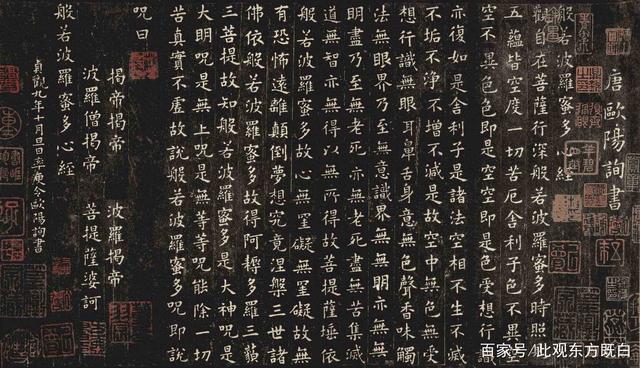 唐歐陽詢書
般若波羅蜜多心經
觀自在菩薩行深般若波羅蜜多時照見
五蘊皆空度一切苦厄舍利子色不異空
空不異色色即是空空即是色受想行識
亦復如是舍利子是諸法空相不生不滅
不垢不淨不增不減是故空中無色無受
想行識無眼耳鼻舌身意無色聲香味觸
法無眼界乃至無意識界無無明亦無無
明盡乃至無老死亦無老死盡無苦集滅
道無智亦無得以無所得故菩提薩埵依
般若波羅蜜多故心無罣礙無罣礙故無
有恐怖遠離顛倒夢想究竟涅槃三世諸
佛依般若波羅蜜多故得阿耨多羅三藐
三菩提故知般若波羅蜜多是大神咒是
大明咒是無上咒是無等等咒能除一切
苦真實不虛故說般若波羅蜜多咒即說
咒曰
揭帝揭帝 波羅揭帝
波羅僧揭帝 菩提薩婆訶
般若波羅蜜多心經
貞觀九年十月旦日率更令歐陽詢書
百家号/此观东方既白